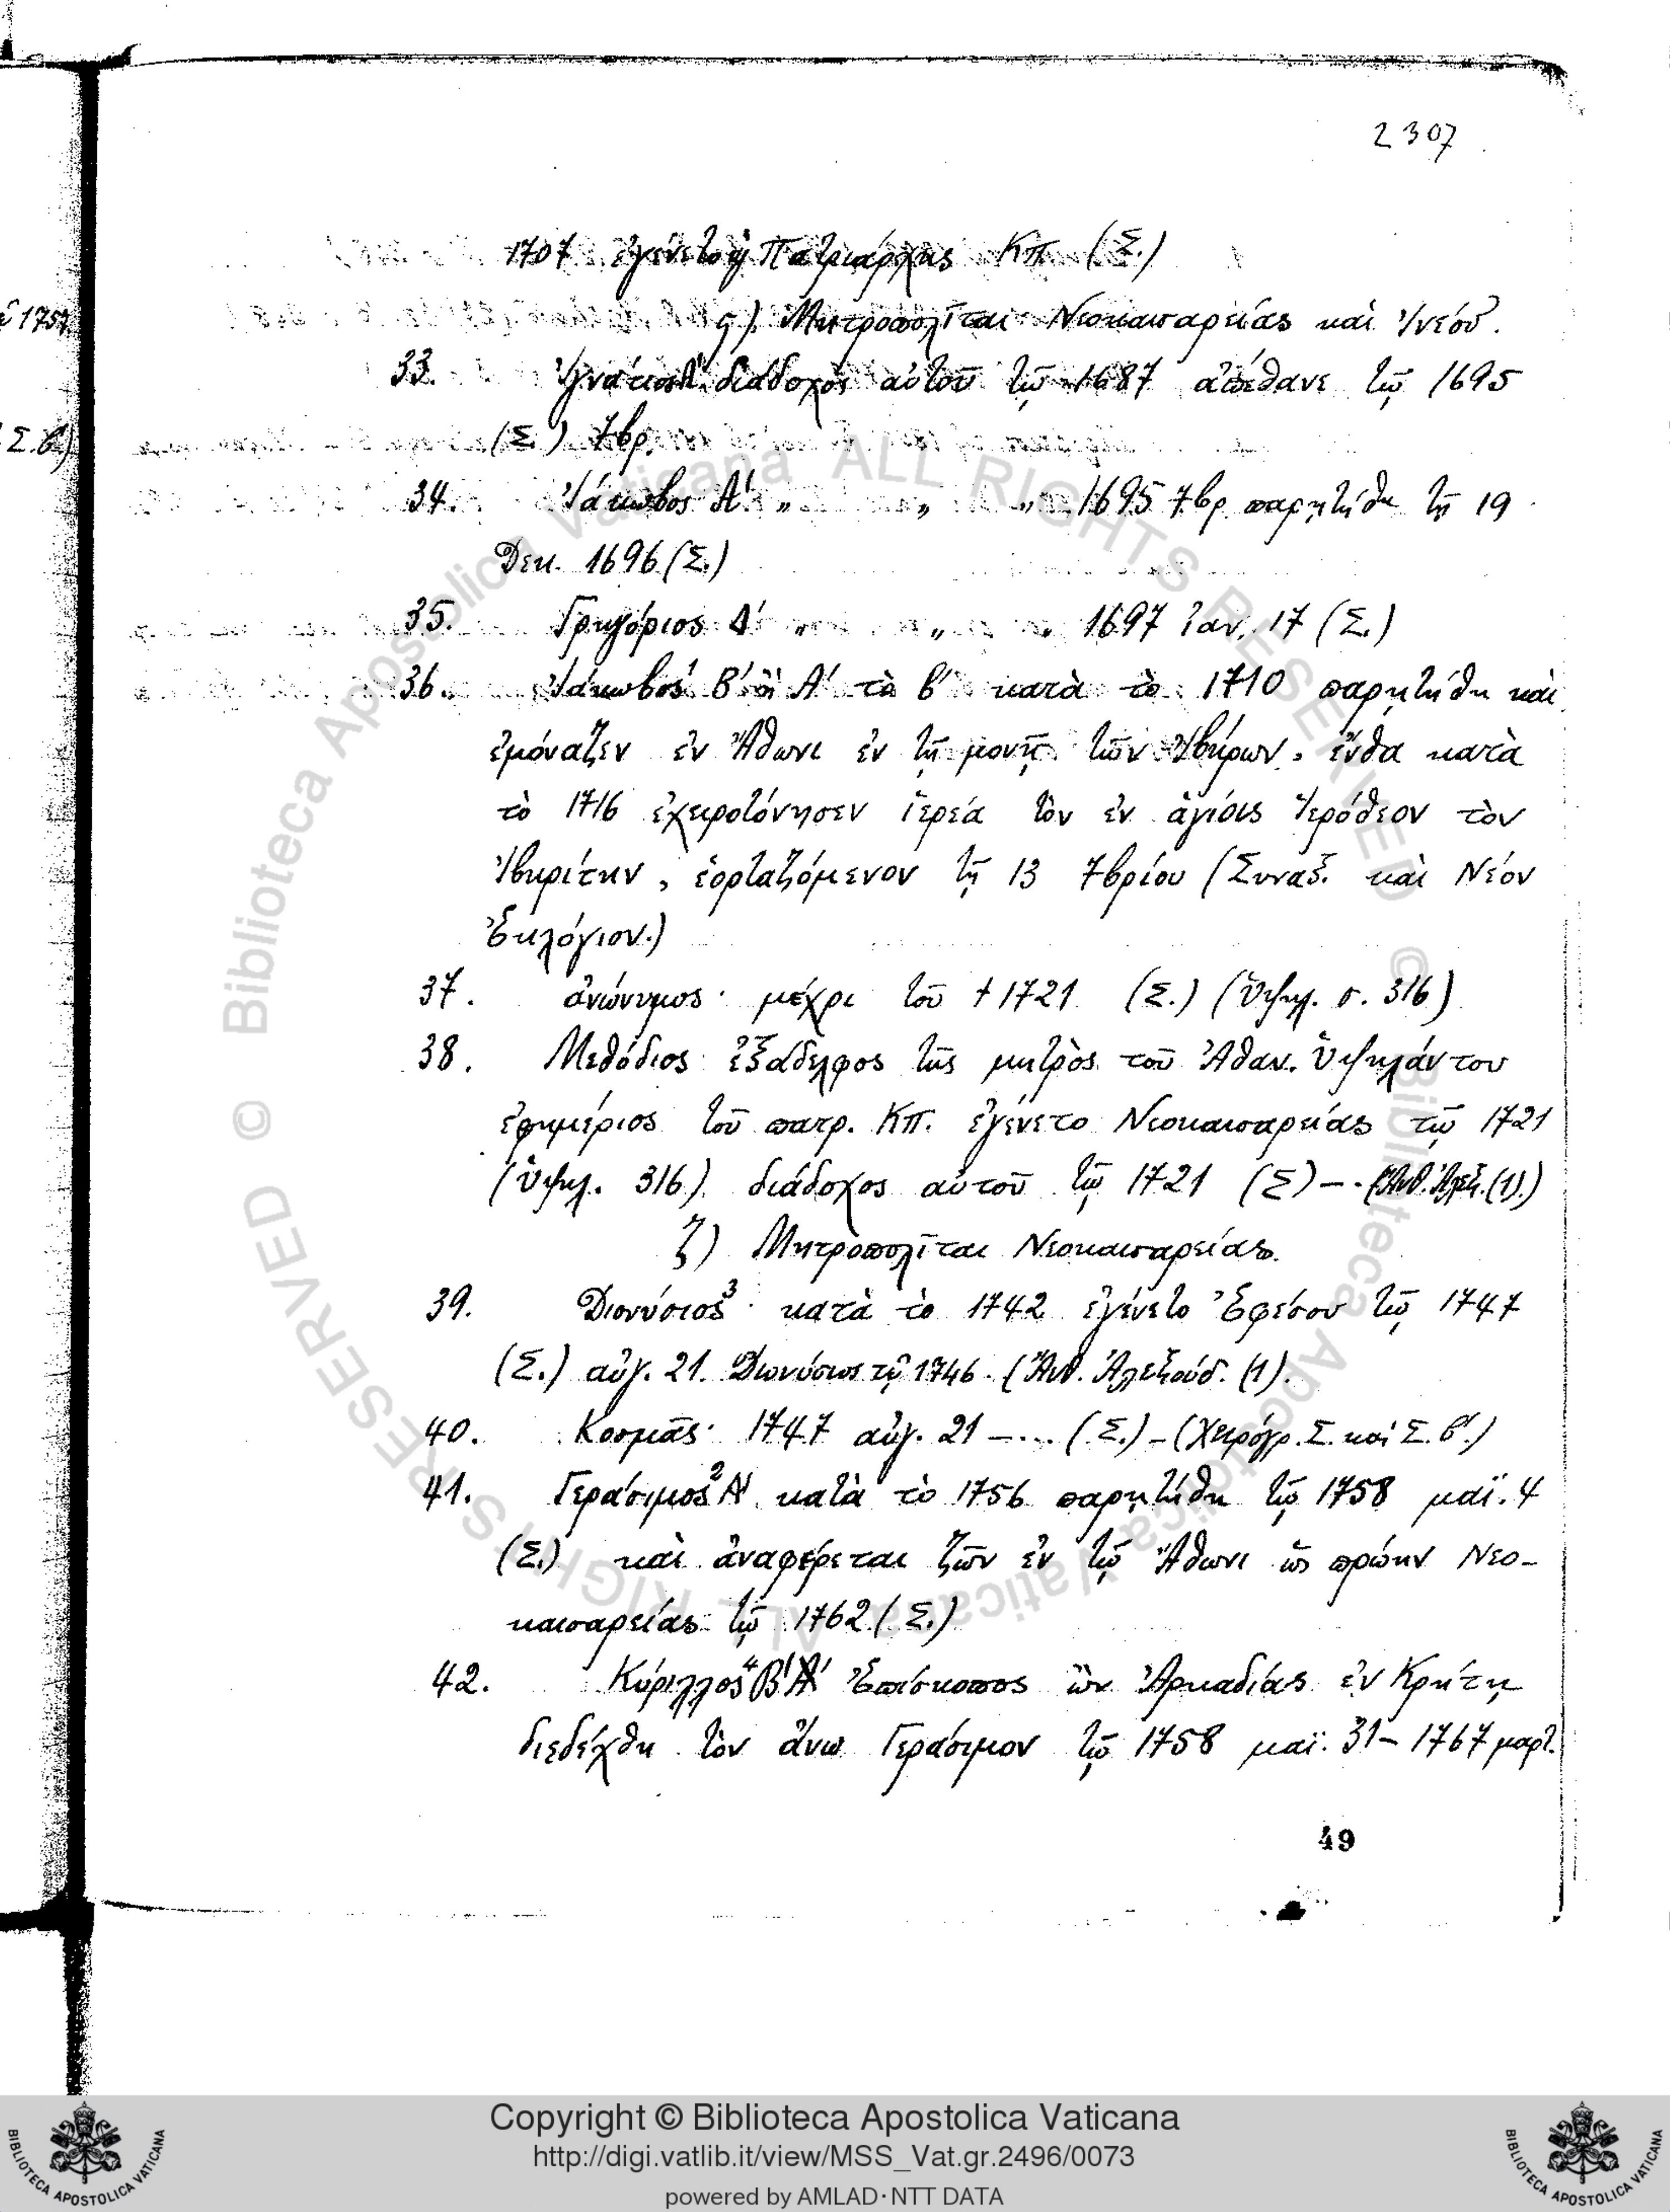 2307
1707 ἐγένετο Πατριάρχης Κπ. (Σ.)
ϛ). Μητροπολῖται Νεοκαισαρείας καὶ Ἰνέου.
33. Ἰγνάτιος διάδοχος αὐτοῦ τῷ 1687 ἀπέθανε τῷ 1695
(Σ.) 7βρ.
34. Ἰάκωβος Α΄. „ „ „ 1695 7βρ παρῃτήθη τῇ 19
Δεκ. 1696 (Σ.)
35. Γρηγόριος Δ΄ „ „ „ 1697 ἰαν. 17 (Σ.)
36. Ἰάκωβος Β΄ ἢ Α΄ τὸ β΄ κατὰ τὸ 1710 παρῃτήθη καὶ
ἐμόναζεν ἐν Ἄθωνι ἐν τῇ μονῇ τῶν Ἰβήρων, ἔνθα κατὰ
τὸ 1716 ἐχειροτόνησεν ἱερέα τὸν ἐν ἁγίοις Ἱερόθεον τὸν
Ἰβηρίτην, ἑορταζόμενον τῇ 13 7βρίου (Συναξ. καὶ Νέον
Ἐκλόγιον.)
37. ἀνώνυμος· μέχρι τοῦ † 1721 (Σ.) (Ὑψηλ. σ. 316)
38. Μεθόδιος ἐξάδελφος τῆς μητρὸς τοῦ Ἀθαν. Ὑψηλάντου
ἐφημέριος τοῦ πατρ. Κπ. ἐγένετο Νεοκαισαρείας τῷ 1721
(Ὑψηλ. 316). διάδοχος αὐτοῦ τῷ 1721 (Σ) –. (Ἀνθ. Ἀλεξ. (1).)
ζ) Μητροπολῖται Νεοκαισαρείας.
39. Διονύσιος³· κατὰ τὸ 1742 ἐγένετο Ἐφέσου τῷ 1747
(Σ.) αὐγ. 21. Διονύσιος τῷ 1746. (Ἀνθ. Ἀλεξούδ. (1).
40. Κοσμᾶς· 1747 αὐγ. 21 –... (Σ.) – (Χειρόγρ. Σ. καὶ Σ. β΄.)
41. Γεράσιμος² Α΄ κατὰ τὸ 1756 παρῃτήθη τῷ 1758 μαΐ. 4
(Σ.) καὶ ἀναφέρεται ζῶν ἐν τῷ Ἄθωνι ὡς πρώην Νεο-
καισαρείας τῷ 1762 (Σ.)
42. Κύριλλος⁴ Β΄ Ἐπίσκοπος ὢν Ἀρκαδίας ἐν Κρήτῃ
διεδέχθη τὸν ἄνω Γεράσιμον τῷ 1758 μαΐ. 31 – 1767 μαρτ.
49
Σ.β.)
© Biblioteca Apostolica Vaticana ALL RIGHTS RESERVED © Biblioteca Apostolica Vaticana ALL RIGHTS RESERVED
Copyright © Biblioteca Apostolica Vaticana
http://digi.vatlib.it/view/MSS_Vat.gr.2496/0073
powered by AMLAD·NTT DATA
BIBLIOTECA APOSTOLICA VATICANA
BIBLIOTECA APOSTOLICA VATICANA